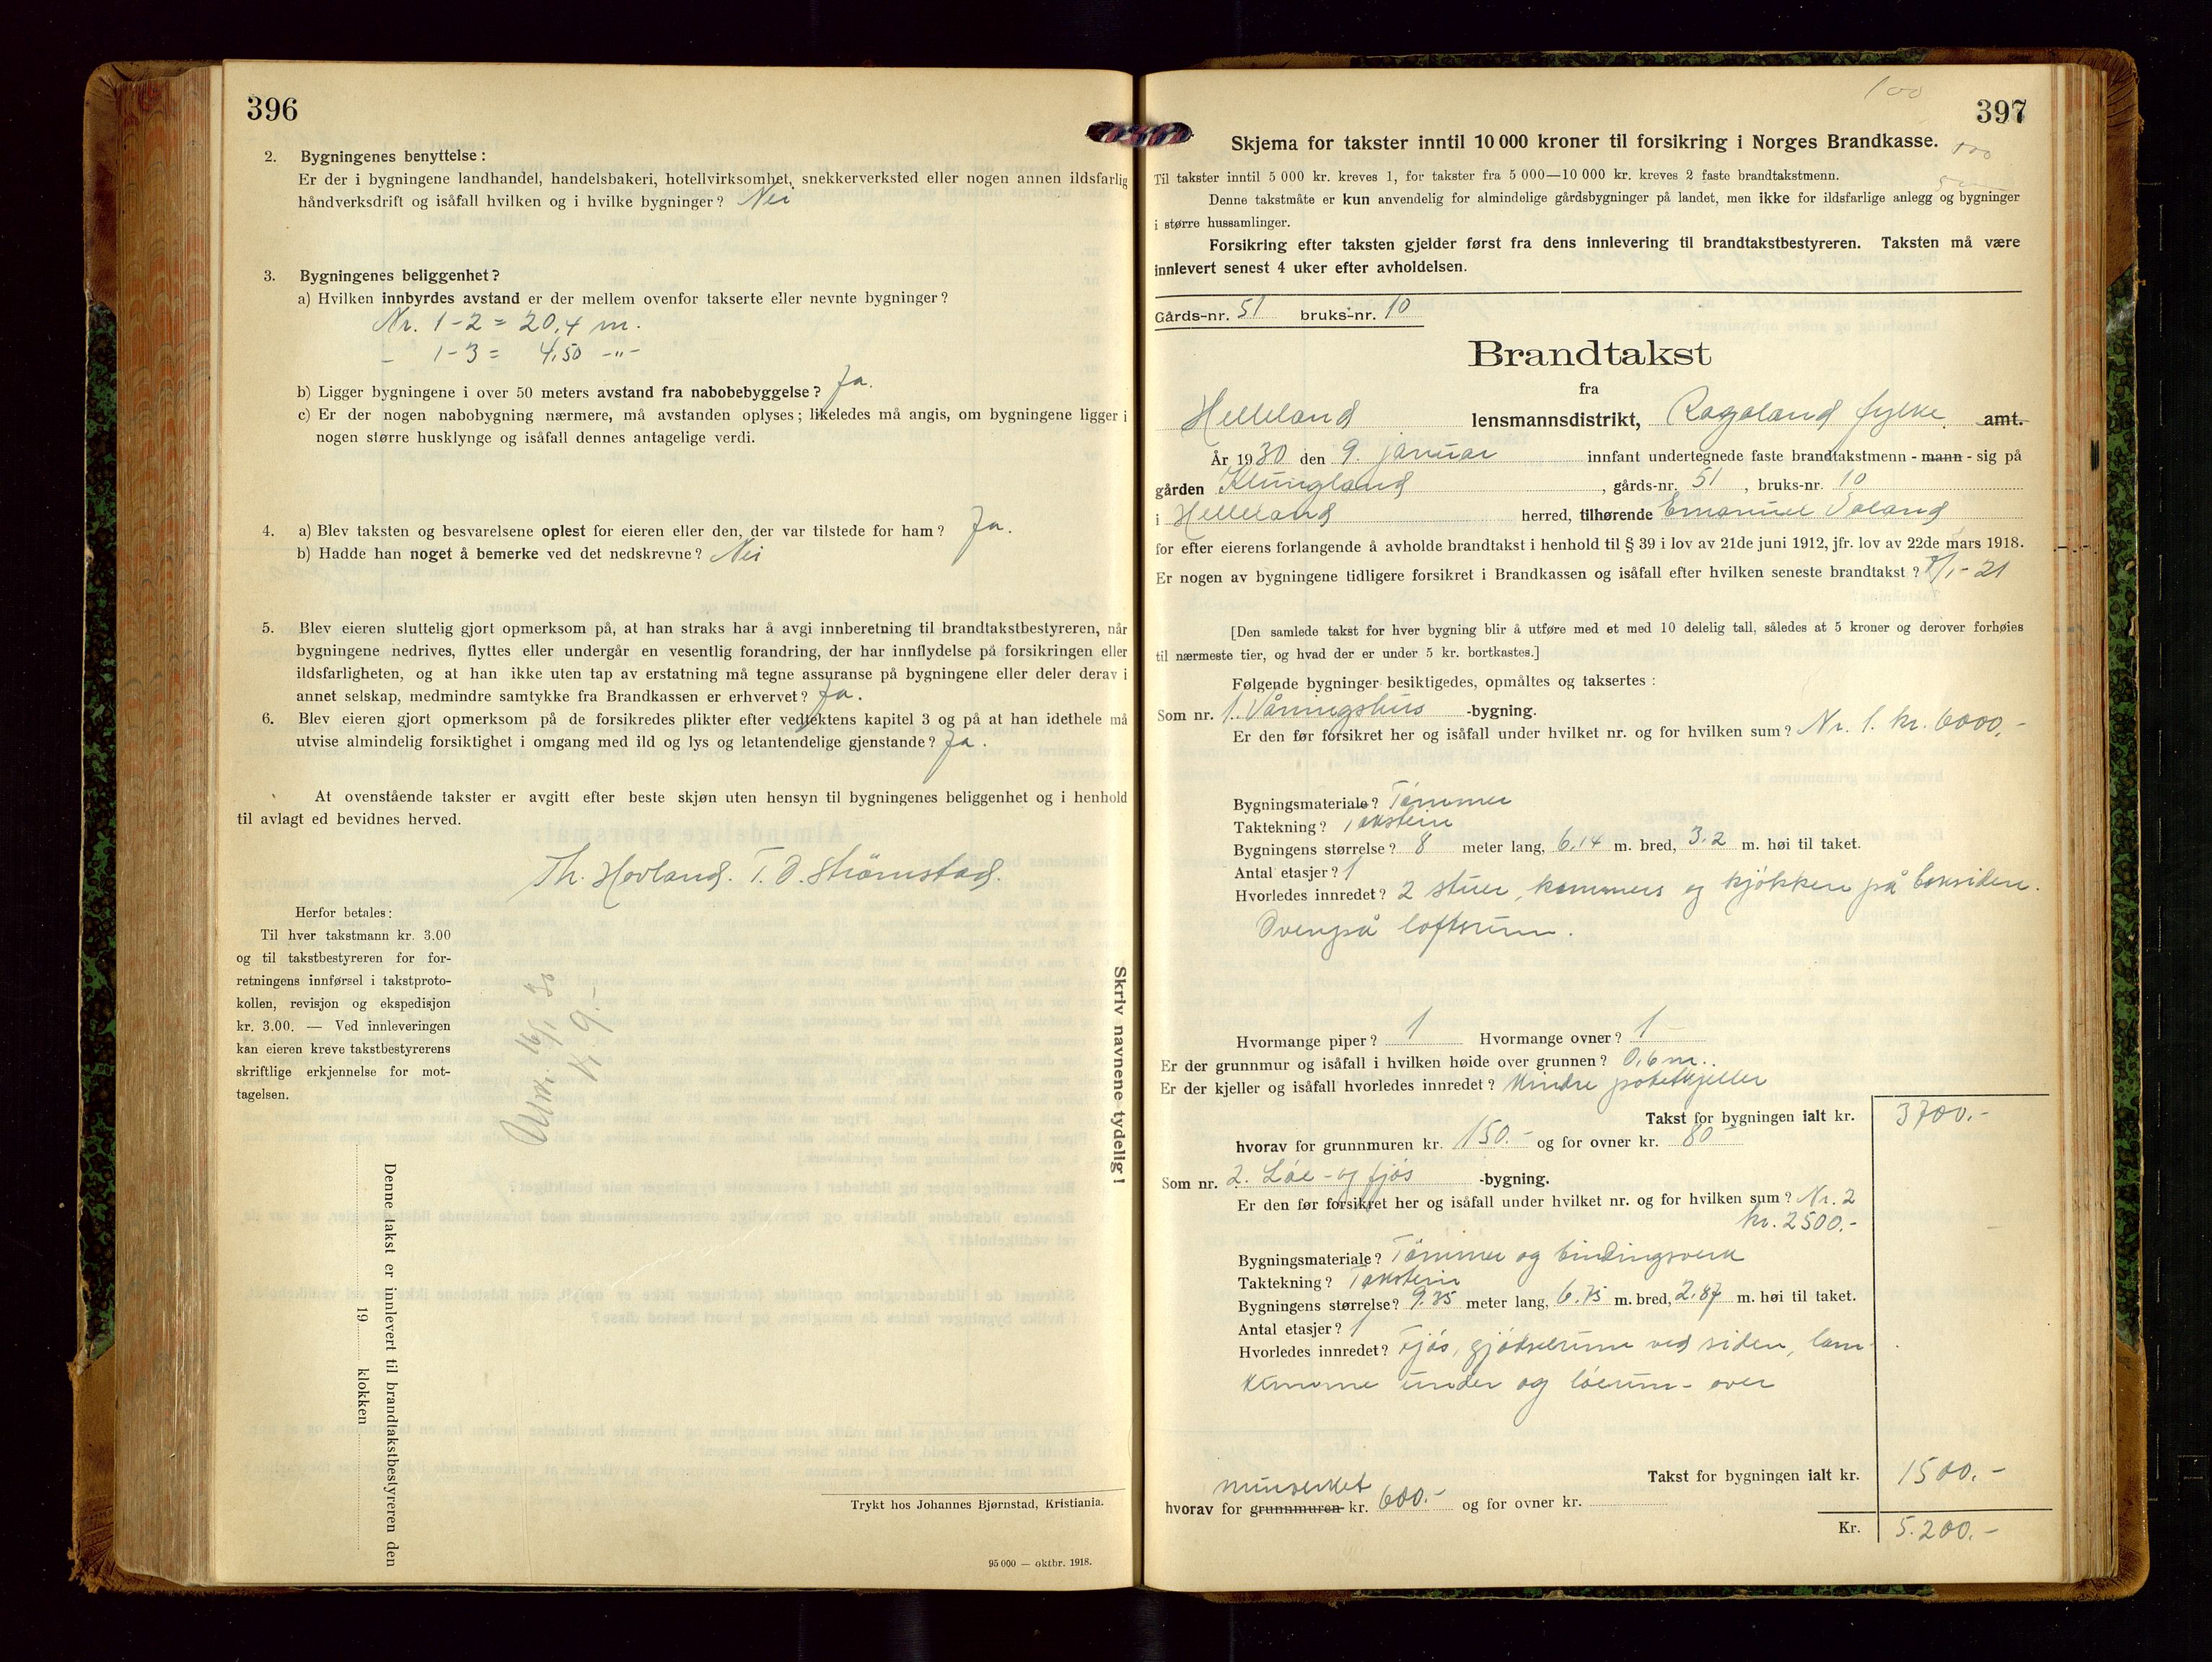 396
2. Bygningenes benyttelse :
Er der i bygningene landhandel, handelsbakeri, hotellvirksomhet, snekkerverksted eller nogen annen ildsfarlig
håndverksdrift og isåfall hvilken og i hvilke bygninger? Nei
3. Bygningenes beliggenhet?
a) Hvilken innbyrdes avstand er der mellem ovenfor takserte eller nevnte bygninger?
Nr. 1-2 = 20,4 m.
- 1-3 = 4,50 -"-
b) Ligger bygningene i over 50 meters avstand fra nabobebyggelse? Ja.
c) Er der nogen nabobygning nærmere, må avstanden oplyses; likeledes må angis, om bygningene ligger i
nogen større husklynge og isåfall dennes antagelige verdi.
4. a) Blev taksten og besvarelsene oplest for eieren eller den, der var tilstede for ham? Ja.
b) Hadde han noget å bemerke ved det nedskrevne? Nei
5. Blev eieren sluttelig gjort opmerksom på, at han straks har å avgi innberetning til brandtakstbestyreren, når
bygningene nedrives, flyttes eller undergår en vesentlig forandring, der har innflydelse på forsikringen eller
ildsfarligheten, og at han ikke uten tap av erstatning må tegne assuranse på bygningene eller deler derav i
annet selskap, medmindre samtykke fra Brandkassen er erhvervet? Ja.
6. Blev eieren gjort opmerksom på de forsikredes plikter efter vedtektens kapitel 3 og på at han idethele må
utvise almindelig forsiktighet i omgang med ild og lys og letantendelige gjenstande? Ja.
At ovenstående takster er avgitt efter beste skjøn uten hensyn til bygningenes beliggenhet og i henhold
til avlagt ed bevidnes herved.
Th. Hovland. T. O. Strømstad.
Herfor betales:
Til hver takstmann kr. 3.00
og til takstbestyreren for for-
retningens innførsel i takstproto-
kollen, revisjon og ekspedisjon
kr. 3.00. — Ved innleveringen
kan eieren kreve takstbestyrerens
skriftlige erkjennelse for mot-
tagelsen.
16/1 30
9.-
Denne takst er innlevert til brandtakstbestyreren den
19 klokken
Skriv navnene tydelig!
Trykt hos Johannes Bjørnstad, Kristiania.
95 000 — oktbr. 1918.
100
397
Skjema for takster inntil 10 000 kroner til forsikring i Norges Brandkasse.
Til takster inntil 5 000 kr. kreves 1, for takster fra 5 000—10 000 kr. kreves 2 faste brandtakstmenn.
Denne takstmåte er kun anvendelig for almindelige gårdsbygninger på landet, men ikke for ildsfarlige anlegg og bygninger
i større hussamlinger.
Forsikring efter taksten gjelder først fra dens innlevering til brandtakstbestyreren. Taksten må være
innlevert senest 4 uker efter avholdelsen.
Gårds-nr. 51 bruks-nr. 10
Brandtakst
fra
Helleland lensmannsdistrikt, Rogaland fylke. amt.
År 1930 den 9. januar innfant undertegnede faste brandtakstmenn - mann - sig på
gården Klungland, gårds-nr. 51, bruks-nr. 10
i Helleland herred, tilhørende Emanuel
for efter eierens forlangende å avholde brandtakst i henhold til § 39 i lov av 21de juni 1912, jfr. lov av 22de mars 1918.
Er nogen av bygningene tidligere forsikret i Brandkassen og isåfall efter hvilken seneste brandtakst? /1- 21
[Den samlede takst for hver bygning blir å utføre med et med 10 delelig tall, således at 5 kroner og derover forhøies
til nærmeste tier, og hvad der er under 5 kr. bortkastes.]
Følgende bygninger besiktigedes, opmåltes og taksertes :
Som nr. 1. Våningshus -bygning.
Er den før forsikret her og isåfall under hvilket nr. og for hvilken sum? Nr. 1. kr. 6000,-
Bygningsmateriale? Tømmer
Taktekning? Takstein
Bygningens størrelse? 8 meter lang, 6,14 m. bred, 3.2 m. høi til taket.
Antal etasjer? 1
Hvorledes innredet? 2 stuer, kammers og kjøkken på baksiden.
Ovenpå loftsrum.
Hvormange piper? 1 Hvormange ovner? 1
Er der grunnmur og isåfall i hvilken høide over grunnen? 0,6 m.
Er der kjeller og isåfall hvorledes innredet? Mindre potetkjeller
Takst for bygningen ialt kr. 3700.-
hvorav for grunnmuren kr. 150.- og for ovner kr. 80-
Som nr. 2. Løe- og fjøs -bygning.
Er den før forsikret her og isåfall under hvilket nr. og for hvilken sum? Nr. 2
kr. 2500.-
Bygningsmateriale? Tømmer og bindingsverk
Taktekning? Takstein
Bygningens størrelse? 9.35 meter lang, 6.75 m. bred, 2.87 m. høi til taket.
Antal etasjer? 1
Hvorledes innredet? Fjøs, gjødselrum ved siden, lam-
under og løerum- over
Takst for bygningen ialt kr. 1500.-
murverket
hvorav for grunnmuren kr. 600.- og for ovner kr.
Kr. 5.200.-